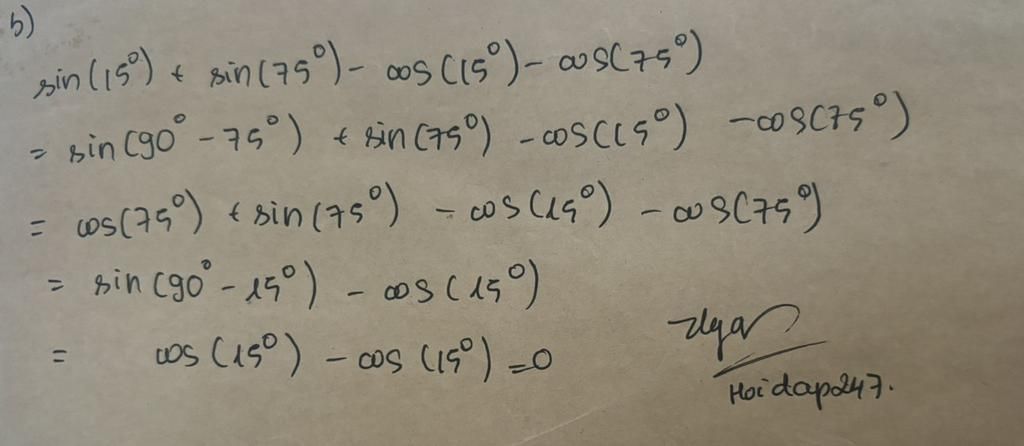 b)
sin(15°) + sin(75°) - cos(15°) - cos(75°)
= sin(90° - 75°) + sin(75°) - cos(15°) - cos(75°)
= cos(75°) + sin(75°) - cos(15°) - cos(75°)
= sin(90° - 15°) - cos(15°)
= cos(15°) - cos(15°) = 0
Hoidap247.